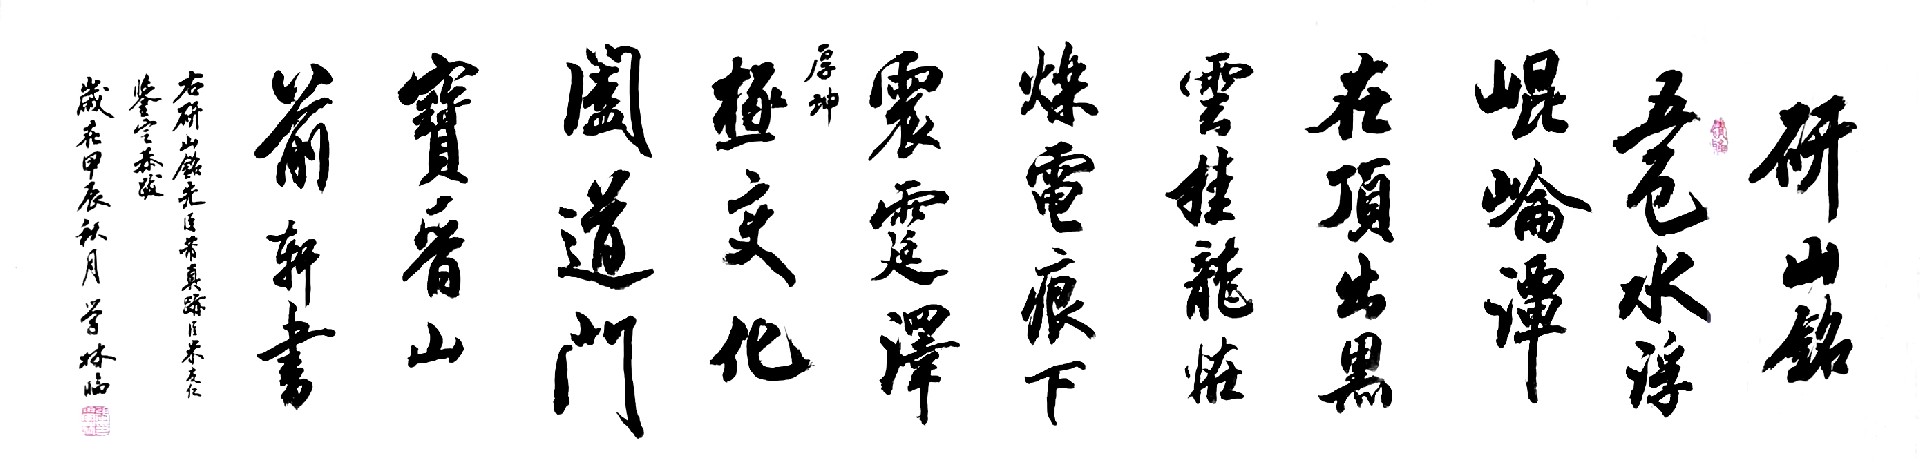 研山銘
五色水浮
崐崘潭
在頂出黑
雲挂龍恠
爍電痕下
震霆澤
厚坤
極变化
阖道門
寶晉山
前軒書
右研山銘先臣芾真跡臣米友仁
鉴定恭跋
歲在甲辰秋月学林临